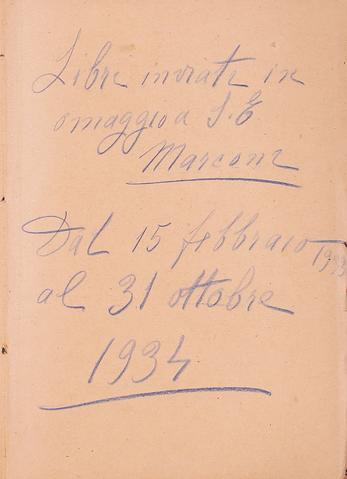 Libri inviati in
omaggio a S.E
Marconi
Dal 15 febbraio 1933
al 31 ottobre
1934